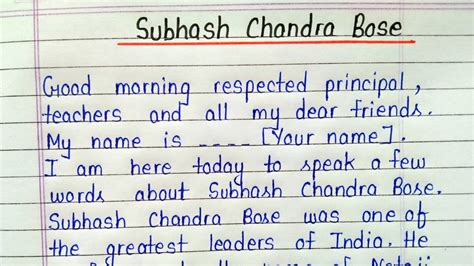 Subhash Chandra Bose
Good morning respected principal,
teachers and all my dear friends.
My name is ---- [Your name].
I am here today to speak a few
words about Subhash Chandra Bose.
Subhash Chandra Bose was one of
the greatest leaders of India. He